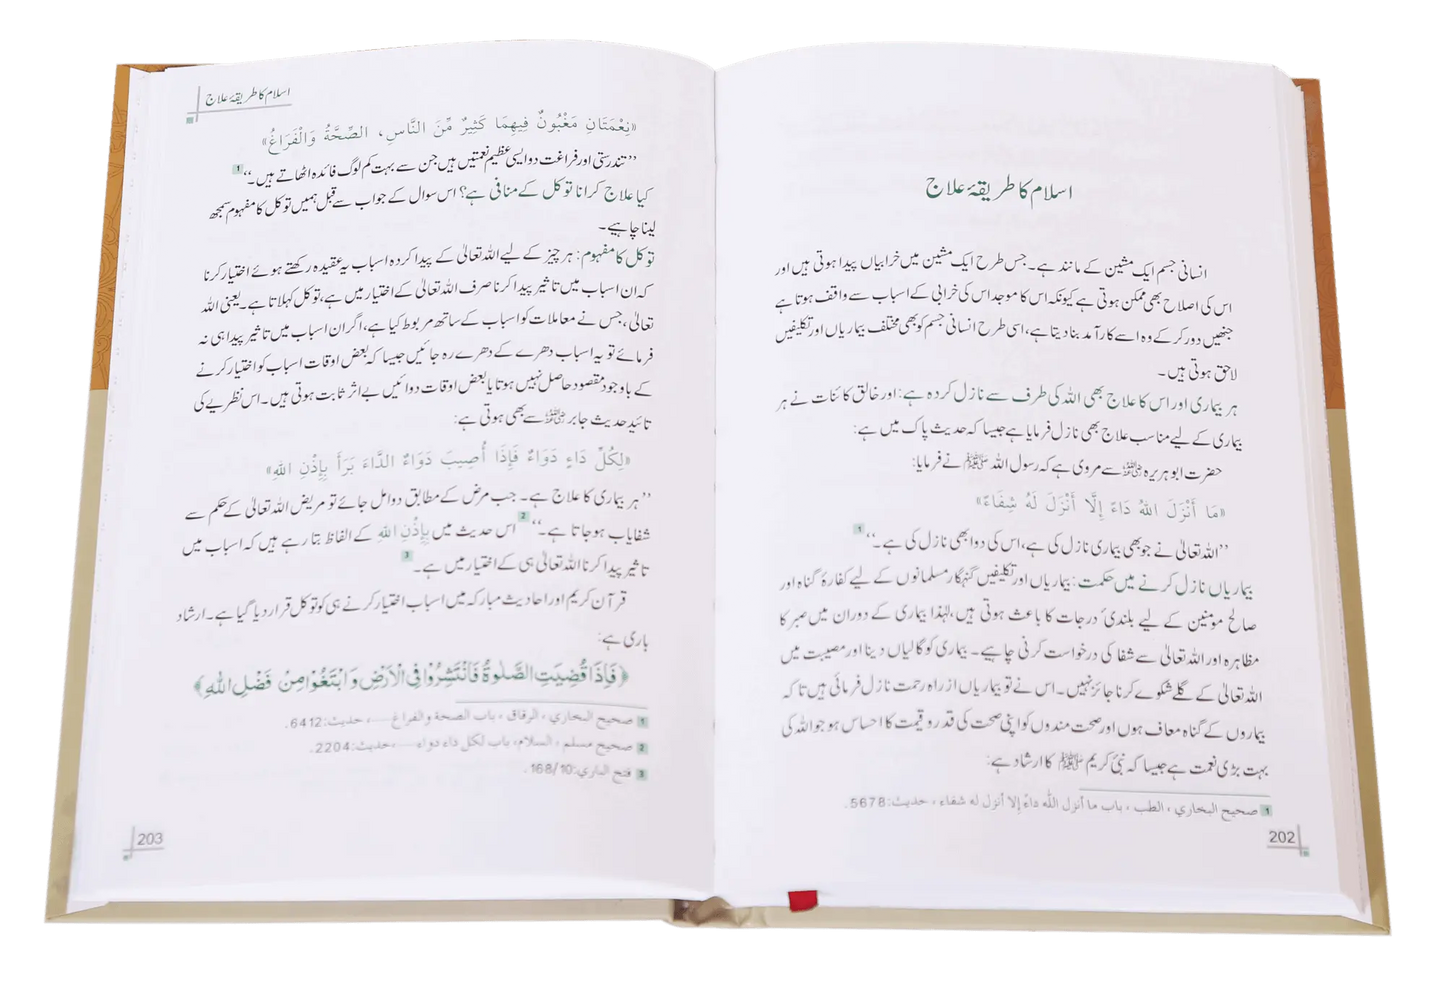 اسلام کا طریقۂ علاج
انسانی جسم ایک مشین کے مانند ہے۔ جس طرح ایک مشین میں خرابیاں پیدا ہوتی ہیں اور
اس کی اصلاح بھی ممکن ہوتی ہے کیونکہ اس کا موجد اس کی خرابی کے اسباب سے واقف ہوتا ہے
جنھیں دور کر کے وہ اسے کارآمد بنا دیتا ہے، اسی طرح انسانی جسم کو بھی مختلف بیماریاں اور تکلیفیں
لاحق ہوتی ہیں۔
ہر بیماری اور اس کا علاج بھی اللہ کی طرف سے نازل کردہ ہے: اور خالق کائنات نے ہر
بیماری کے لیے مناسب علاج بھی نازل فرمایا ہے جیسا کہ حدیث پاک میں ہے:
حضرت ابوہریرہ رضی اللہ عنہ سے مروی ہے کہ رسول اللہ ﷺ نے فرمایا:
«مَا أَنْزَلَ اللهُ دَاءً إِلَّا أَنْزَلَ لَهُ شِفَاءً»
’’اللہ تعالیٰ نے جو بھی بیماری نازل کی ہے، اس کی دوا بھی نازل کی ہے۔‘‘ 1
بیماریاں نازل کرنے میں حکمت: بیماریاں اور تکلیفیں گنہگار مسلمانوں کے لیے کفارۂ گناہ اور
صالح مومنین کے لیے بلندیٔ درجات کا باعث ہوتی ہیں، لہٰذا بیماری کے دوران میں صبر کا
مظاہرہ اور اللہ تعالیٰ سے شفا کی درخواست کرنی چاہیے۔ بیماری کو گالیاں دینا اور مصیبت میں
اللہ تعالیٰ کے گلے شکوے کرنا جائز نہیں۔ اس نے تو بیماریاں از راہ رحمت نازل فرمائی ہیں تا کہ
بیماروں کے گناہ معاف ہوں اور صحت مندوں کو اپنی صحت کی قدر و قیمت کا احساس ہو جو اللہ کی
بہت بڑی نعمت ہے جیسا کہ نبیٔ کریم ﷺ کا ارشاد ہے:
1 صحيح البخاري، الطب، باب ما أنزل الله داءً إلا أنزل له شفاء، حديث: 5678.
202
اسلام کا طریقۂ علاج
«نِعْمَتَانِ مَغْبُونٌ فِيهِمَا كَثِيرٌ مِّنَ النَّاسِ، الصِّحَّةُ وَالْفَرَاغُ»
’’تندرستی اور فراغت دو ایسی عظیم نعمتیں ہیں جن سے بہت کم لوگ فائدہ اٹھاتے ہیں۔‘‘ 1
کیا علاج کرانا توکل کے منافی ہے؟ اس سوال کے جواب سے قبل ہمیں توکل کا مفہوم سمجھ
لینا چاہیے۔
توکل کا مفہوم: ہر چیز کے لیے اللہ تعالیٰ کے پیدا کردہ اسباب یہ عقیدہ رکھتے ہوئے اختیار کرنا
کہ ان اسباب میں تاثیر پیدا کرنا صرف اللہ تعالیٰ کے اختیار میں ہے، توکل کہلاتا ہے۔ یعنی اللہ
تعالیٰ، جس نے معاملات کو اسباب کے ساتھ مربوط کیا ہے، اگر ان اسباب میں تاثیر پیدا ہی نہ
فرمائے تو یہ اسباب دھرے کے دھرے رہ جائیں جیسا کہ بعض اوقات اسباب کو اختیار کرنے
کے باوجود مقصود حاصل نہیں ہوتا یا بعض اوقات دوائیں بے اثر ثابت ہوتی ہیں۔ اس نظریے کی
تائید حدیث جابر رضی اللہ عنہ سے بھی ہوتی ہے:
«لِكُلِّ دَاءٍ دَوَاءٌ فَإِذَا أُصِيبَ دَوَاءُ الدَّاءَ بَرَأَ بِإِذْنِ اللهِ»
’’ہر بیماری کا علاج ہے۔ جب مرض کے مطابق دوا مل جائے تو مریض اللہ تعالیٰ کے حکم سے
شفایاب ہو جاتا ہے۔‘‘ 2 اس حدیث میں بِإِذْنِ اللهِ کے الفاظ بتا رہے ہیں کہ اسباب میں
تاثیر پیدا کرنا اللہ تعالیٰ ہی کے اختیار میں ہے۔ 3
قرآن کریم اور احادیث مبارکہ میں اسباب اختیار کرنے ہی کو توکل قرار دیا گیا ہے۔ ارشاد
باری ہے:
﴿فَاِذَا قُضِيَتِ الصَّلٰوةُ فَانْتَشِرُوْا فِى الْاَرْضِ وَابْتَغُوْا مِنْ فَضْلِ اللّٰهِ﴾
1 صحيح البخاري، الرقاق، باب الصحة والفراغ......، حديث: 6412.
2 صحيح مسلم، السلام، باب لكل داء دواء......، حديث: 2204.
3 فتح الباري: 168/10.
203